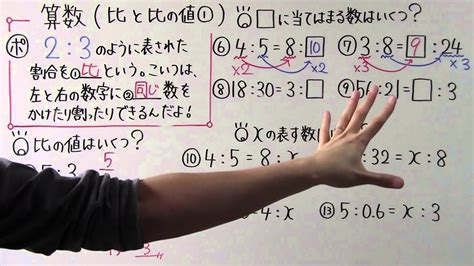 算数(比と比の値①)
ポ 2:3のように表された
割合を①比という。こいつは、
左と右の数字に②同じ数を
かけたり割ったりできるんだよ!
□に当てはまる数はいくつ?
⑥4:5=8:10 ⑦3:8=9:24
×2 ×2 ×3 ×3
⑧18:30=3:□ ⑨56:21=□:3
比の値はいくつ?
5
3
xの表す数
⑩4:5=8:x
:32=x:8
=4:x ⑬5:0.6=x:3